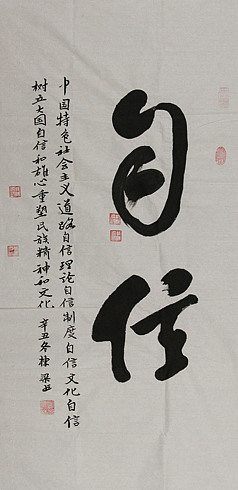 自信
中国特色社会主义道路自信理论自信制度自信文化自信
树立大国自信和雄心重塑民族精神和文化
辛丑冬